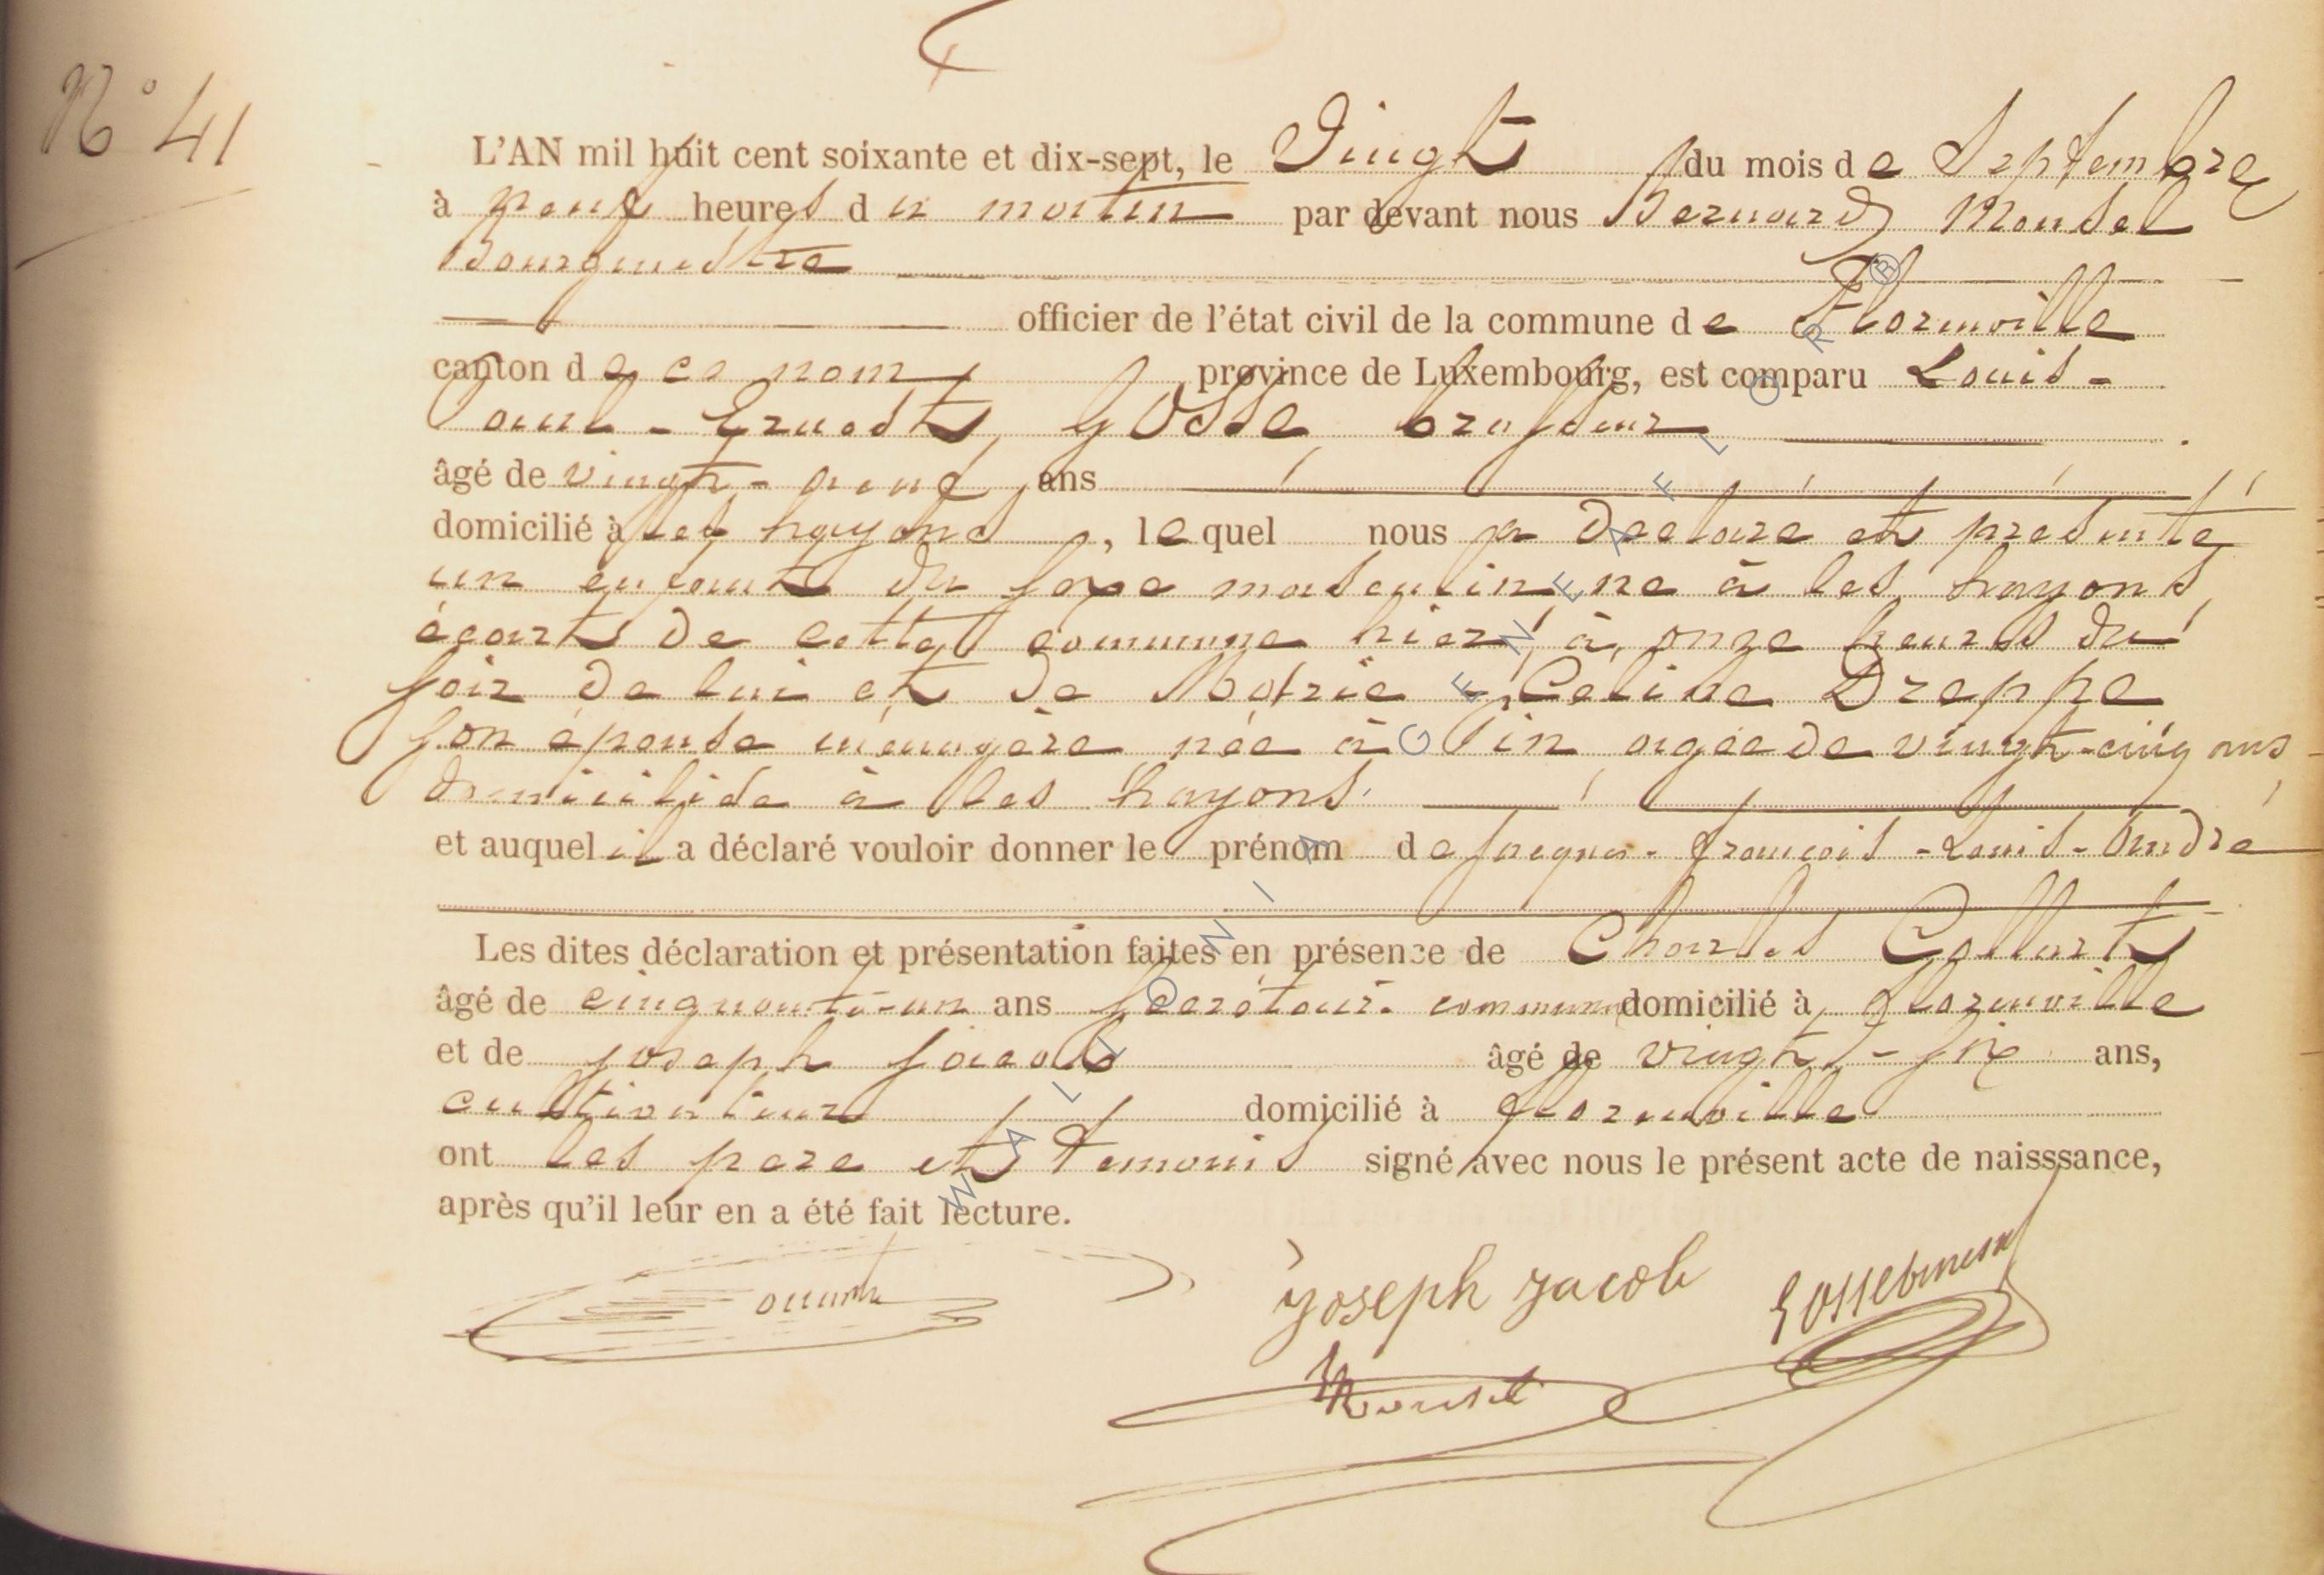 N° 41
L'AN mil huit cent soixante et dix-sept, le Vingt du mois de Septembre
à neuf heures du matin par devant nous Bernard Mousel
Bourgmestre
officier de l'état civil de la commune de Florenville
canton de ce nom province de Luxembourg, est comparu Louis-
Paul-Ernest Gosse brasseur
âgé de vingt-neuf ans
domicilié à les hayons, lequel nous a déclaré et présenté
un enfant du sexe masculin né à les hayons
écart de cette commune hier, à onze heures du
soir de lui et de Marie Celine Dreppe
son épouse ménagère née à Pin agée de vingt-cinq ans
domiciliée à les hayons
et auquel il a déclaré vouloir donner le prénom de Jacques-François-Louis-André
Les dites déclaration et présentation faites en présence de Charles Collart
âgé de cinquante-un ans secrétair. communal domicilié à Florenville
et de joseph jacob âgé de vingt-six ans,
cultivateur domicilié à Florenville
ont les pere et temoins signé avec nous le présent acte de naisssance,
après qu'il leur en a été fait lecture.
joseph jacob
Mousel
WALLONIA GENEEFLOR®